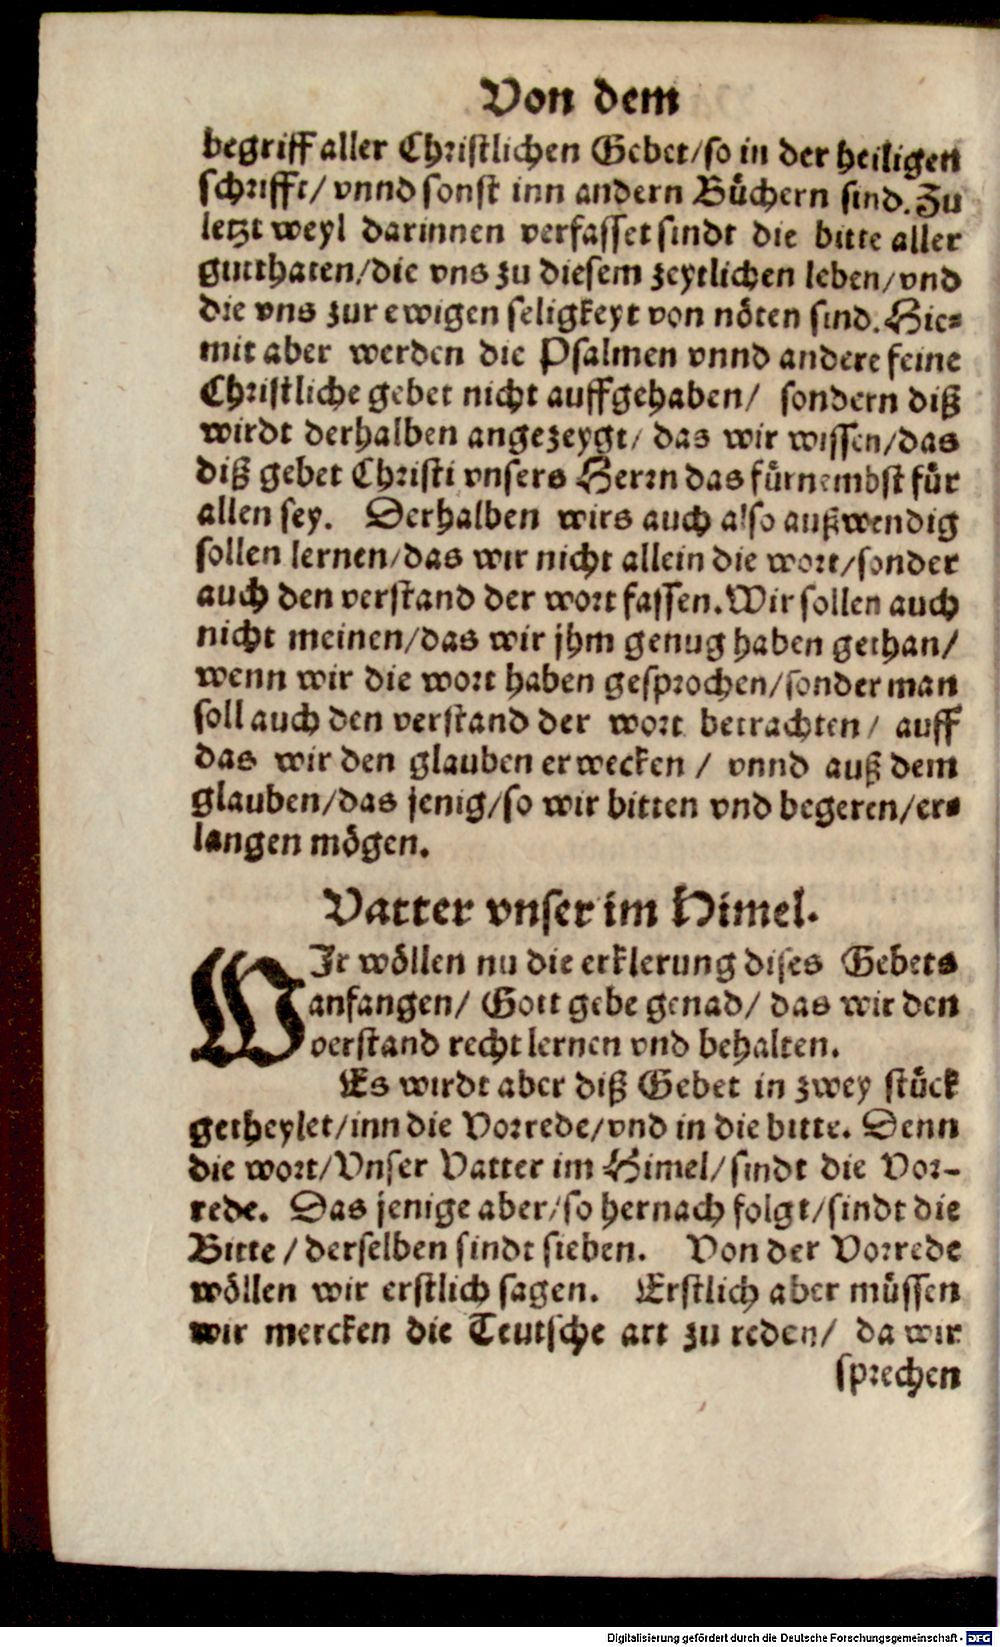 Von dem
begriff aller Christlichen Gebet/so in der heiligen
schrifft/ vnnd sonst inn andern Büchern sind. Zu
letzt weyl darinnen verfasset sindt die bitte aller
gutthaten/die vns zu diesem zeytlichen leben/vnd
die vns zur ewigen seligkeyt von nöten sind. Hie-
mit aber werden die Psalmen vnnd andere feine
Christliche gebet nicht auffgehaben/ sondern diß
wirdt derhalben angezeygt/ das wir wissen/das
diß gebet Christi vnsers Herrn das fürnembst für
allen sey. Derhalben wirs auch also außwendig
sollen lernen/das wir nicht allein die wort/sonder
auch den verstand der wort fassen. Wir sollen auch
nicht meinen/das wir jhm genug haben gethan/
wenn wir die wort haben gesprochen/sonder man
soll auch den verstand der wort betrachten/ auff
das wir den glauben erwecken/ vnnd auß dem
glauben/das jenig/so wir bitten vnd begeren/er-
langen mögen.
Vatter vnser im Himel.
WIr wöllen nu die erklerung dises Gebets
anfangen/ Gott gebe genad/ das wir den
verstand recht lernen vnd behalten.
Es wirdt aber diß Gebet in zwey stück
getheylet/inn die Vorrede/vnd in die bitte. Denn
die wort/Vnser Vatter im Himel/sindt die Vor-
rede. Das jenige aber/so hernach folgt/sindt die
Bitte/derselben sindt sieben. Von der Vorrede
wöllen wir erstlich sagen. Erstlich aber müssen
wir mercken die Teutsche art zu reden/ da wir
sprechen
Digitalisierung gefördert durch die Deutsche Forschungsgemeinschaft - DFG